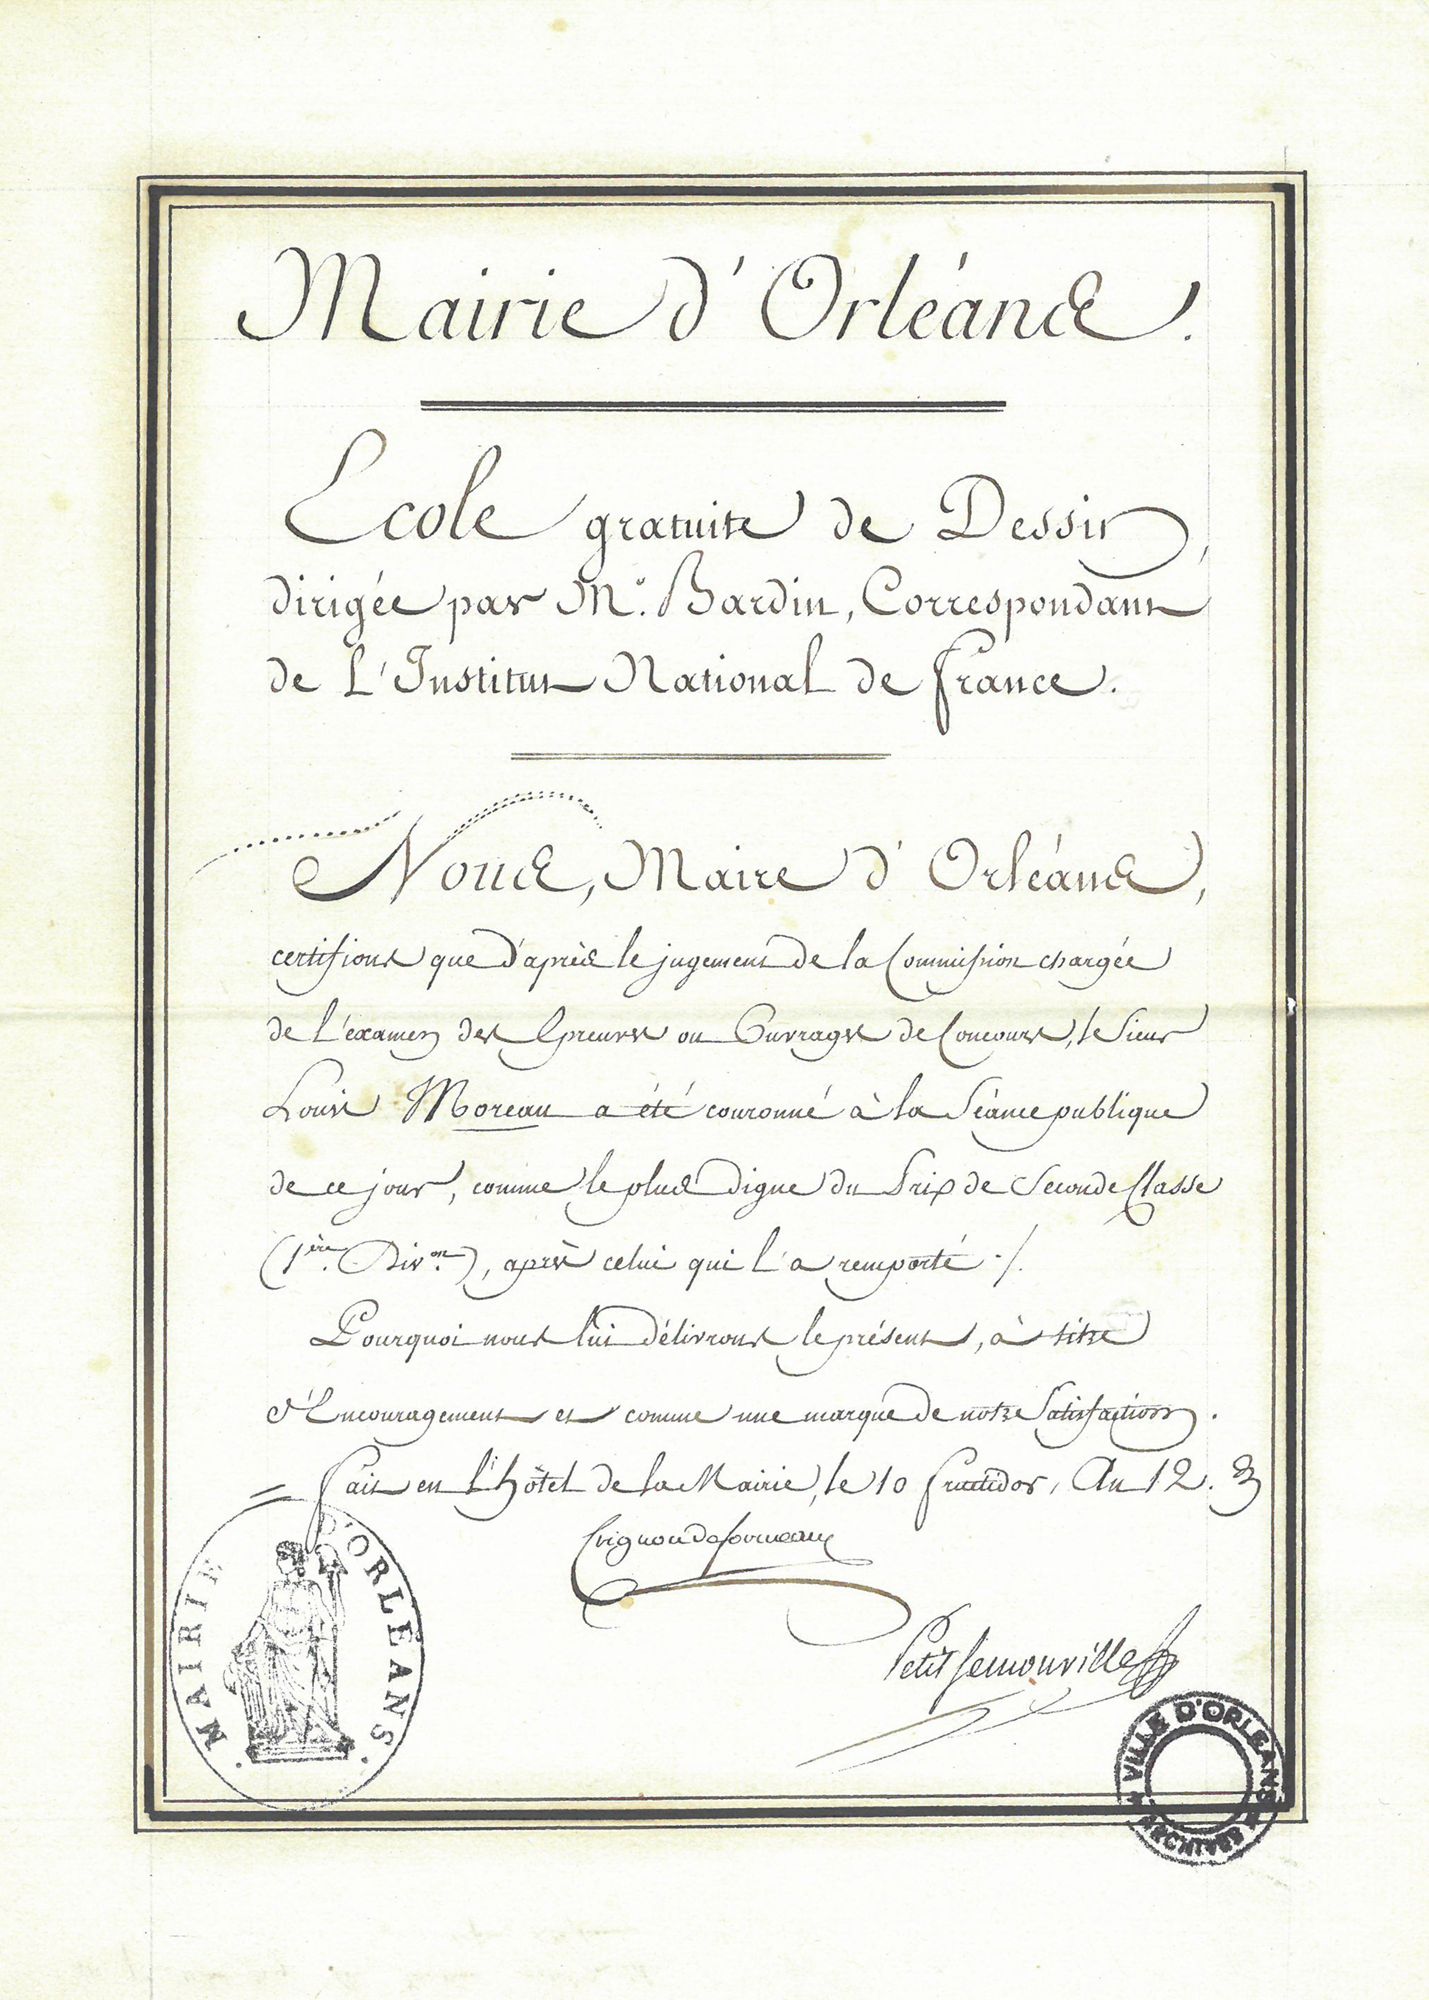 Mairie d'Orléans.
Ecole gratuite de Dessin,
dirigée par Mr. Bardin, Correspondant
de L'Institut National de france.
Nous, Maire d'Orléans,
certifions que d'après le jugement de la Commission chargée
de l'examen des Epreuves ou Ouvrages de Concours, le Sieur
Louis Moreau a été couronné à la Séance publique
de ce jour, comme le plus digne du Prix de Seconde Classe
(1ère. Divon.), après celui qui l'a remporté ./.
Pourquoi nous lui délivrons le présent, à titre
d'Encouragement et comme une marque de notre Satisfaction.
= fait en l'hôtel de la Mairie, le 10 fructidor, An 12.
Crignon desormeaux
Petit Semonville
MAIRIE D'ORLÉANS.
VILLE D'ORLEANS
ARCHIVES